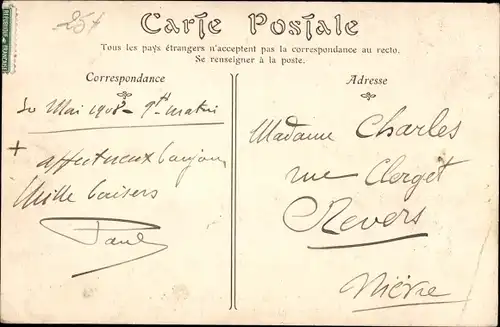 Carte Postale
Tous les pays étrangers n'acceptent pas la correspondance au recto.
Se renseigner à la poste.
Correspondance
Mai 1908 - 9h matin
+ affectueux bonjour
Mille baisers
Paul
Adresse
Madame Charles
rue Clerget
Nevers
Nièvre